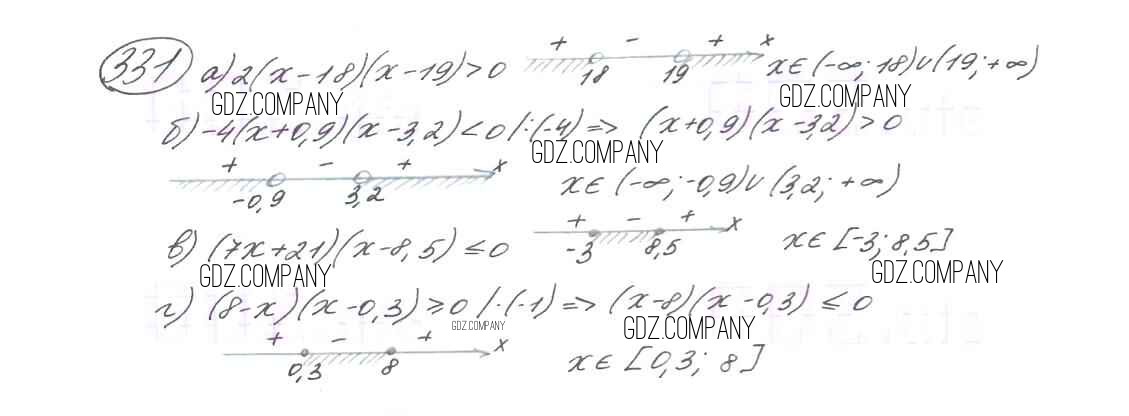 331 а) 2(x-18)(x-19)>0 + - + x 18 19 x∈(-∞; 18)∪(19; +∞)
GDZ.COMPANY GDZ.COMPANY
б) -4(x+0,9)(x-3,2)<0 /:(-4) => (x+0,9)(x-3,2)>0
GDZ.COMPANY
+ - + x -0,9 3,2 x∈(-∞; -0,9)∪(3,2; +∞)
в) (7x+21)(x-8,5)≤0 + - + x -3 8,5 x∈[-3; 8,5]
GDZ.COMPANY GDZ.COMPANY
г) (8-x)(x-0,3)≥0 /·(-1) => (x-8)(x-0,3)≤0
GDZ.COMPANY GDZ.COMPANY
+ - + x 0,3 8 x∈[0,3; 8]